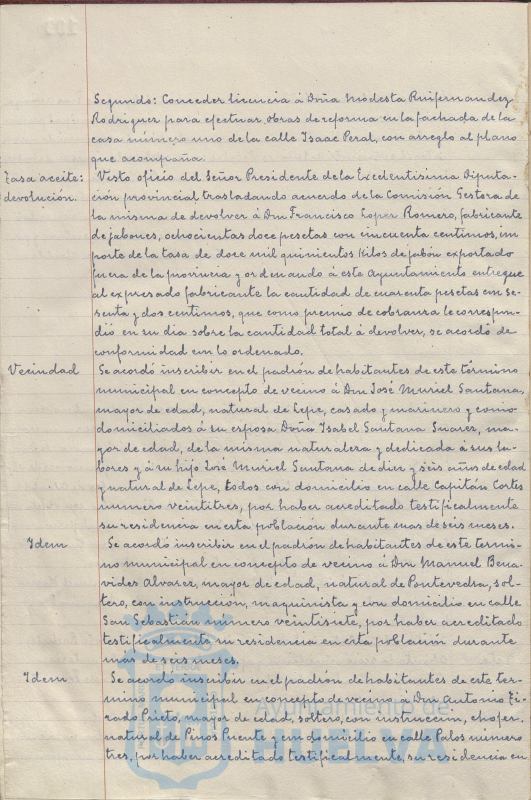 Segundo: Conceder licencia á Doña Modesta Ruifernandez
Rodriguez para efectuar obras de reforma en la fachada de la
casa número uno de la calle Isaac Peral, con arreglo al plano
que acompaña.
Tasa aceite: devolución.
Visto oficio del Señor Presidente de la Excelentisima Diputa-
ción provincial trasladando acuerdo de la Comisión Gestora de
la misma de devolver á Don Francisco Lopez Romero, fabricante
de jabones, ochocientas doce pesetas con cincuenta centimos, im
porte de la tasa de doce mil quinientos kilos de jabón exportado
fuera de la provincia y ordenando á este Ayuntamiento entregue
al expresado fabricante la cantidad de cuarenta pesetas con se-
senta y dos centimos, que como premio de cobranza le correspon-
dió en su dia sobre la cantidad total á devolver, se acordó de
conformidad con lo ordenado.
Vecindad
Se acordó inscribir en el padrón de habitantes de este término
municipal en concepto de vecino á Don José Muriel Santana,
mayor de edad, natural de Lepe, casado y marinero y como
domiciliados á su esposa Doña Isabel Santana Suarez, ma-
yor de edad, de la misma naturaleza y dedicada á sus la-
bores y á su hijo José Muriel Santana de diez y seis años de edad
y natural de Lepe, todos con domicilio en calle Capitán Cortes
número veintitres, por haber acreditado testificalmente
su residencia en esta población durante mas de seis meses.
Idem
Se acordó inscribir en el padrón de habitantes de este termi-
no municipal en concepto de vecino á Don Manuel Bena
vides Alvarez, mayor de edad, natural de Pontevedra, sol-
tero, con instruccion, maquinista y con domicilio en calle
San Sebastián número veintisiete, por haber acreditado
testificalmente su residencia en esta población durante
más de seis meses.
Idem
Se acordó inscribir en el padrón de habitantes de este ter-
mino municipal en concepto de vecino á Don Antonio Ti-
rado Prieto, mayor de edad, soltero, con instruccion, chofer,
natural de Pinos Puente y con domicilio en calle Palos número
tres, por haber acreditado testificalmente, su residencia en
Ayuntamiento de
HUELVA